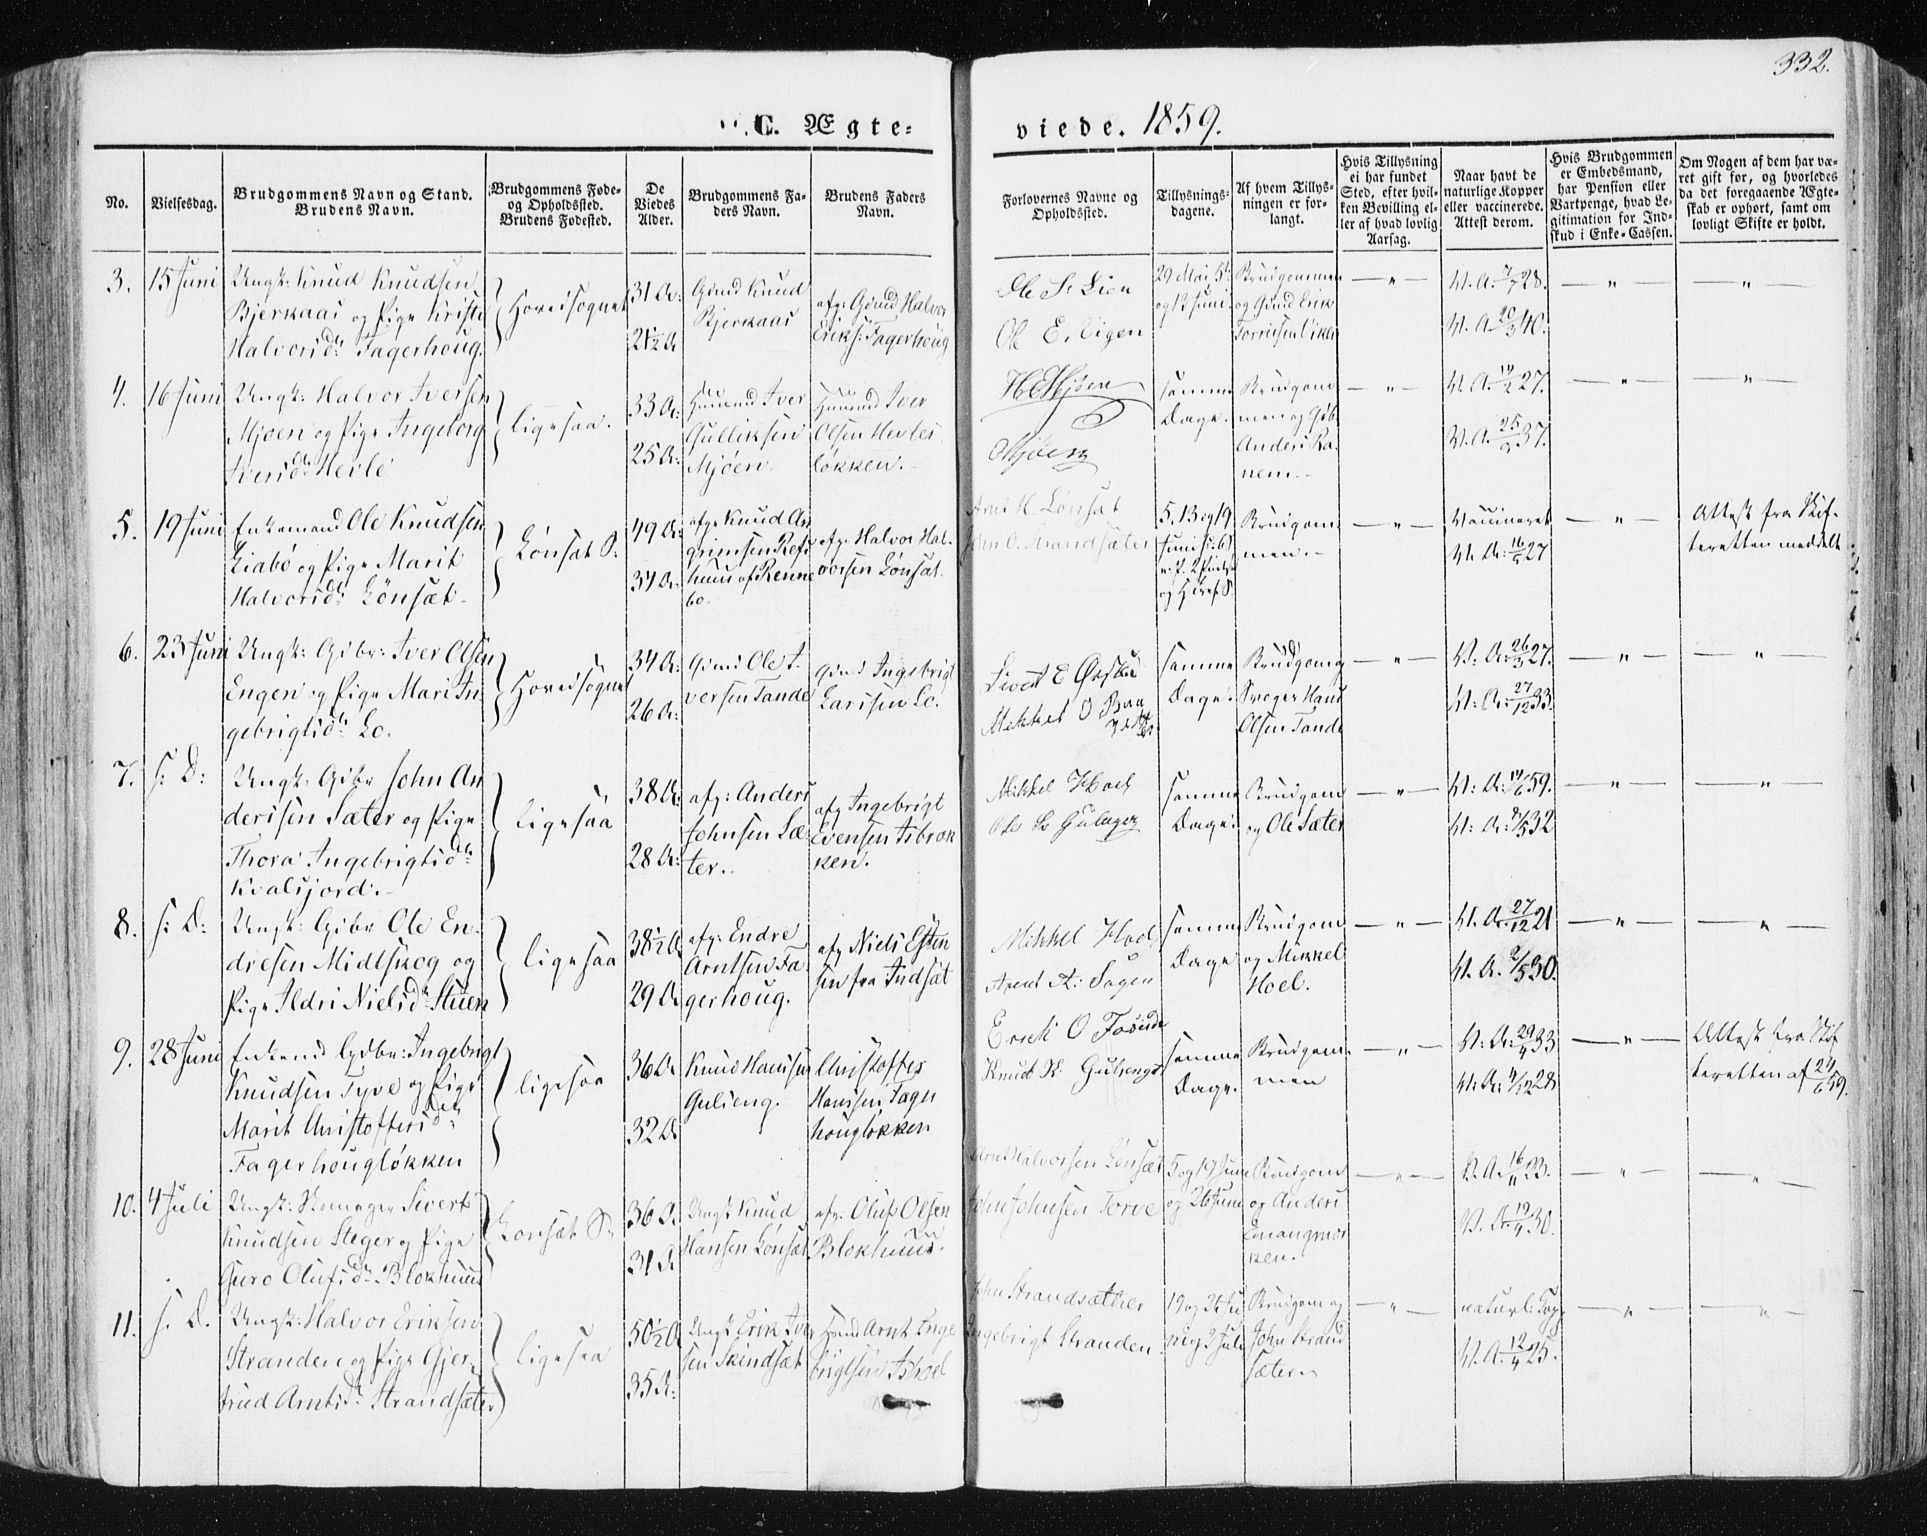 332.
C. Ægte-
viede. 1859.
No.
Vielsesdag.
Brudgommens Navn og Stand.
Brudens Navn.
Brudgommens Føde-
og Opholdssted.
Brudens Fødested.
De
Viedes
Alder.
Brudgommens Fa-
ders Navn.
Brudens Faders
Navn.
Forlovernes Navne og
Opholdssted.
Tillysnings-
dagene.
Af hvem Tillys-
ningen er for-
langt.
Hvis Tillysning
ei har fundet
Sted, efter hvil-
ken Bevilling el-
ler af hvad lovlig
Aarsag.
Naar havt de
naturlige Kopper
eller vaccinerede.
Attest derom.
Hvis Brudgommen
er Embedsmand,
har Pension eller
Vartpenge, hvad Le-
gitimation for Ind-
skud i Enke-Cassen.
Om Nogen af dem har væ-
ret gift før, og hvorledes
da det foregaaende Ægte-
skab er ophørt, samt om
lovligt Skifte er holdt.
3. 15 Juni
Ungk: Knud Knudsen
Bjerkaas og Pige Kristi
Halvorsd: Fagerhoug.
Hovedsognet
31 A:
21½ A
Gdmd Knud
Bjerkaas
afg: Gdmd Halvor
Eriks: Fagerhoug
Ole
Ol E.
29 Mai 5te
og 13 Juni
Brudgommen
og Gdmd Erik
V. A. 7/7 28.
V. A. 40.
4. 16 Juni
Ungk: Halvor Iversen
Mjøen og Pige Ingeborg
Iversd: Hevle
ligesaa.
33 A:
25 A:
Huusmd Iver
Gulliksen
Mjøen.
Huusmd Iver
Olsen Hevles
løkken.
Mjøen
samme
Dage.
Brudgom
men og
Anders Ra-
nem.
V. A. 27.
V. A. 37.
5. 19 Juni
Enkemand Ole Knudsen
Liabø og Pige Marit
Halvorsd: Lønsæt
Lønsæt S:
49 A:
34 A:
afg: Knud Ar
grimsen Refs
huus af Renne
bo.
afg: Halvor Hal-
vorsen Lønsæt.
Arnt H. Lønsæt
John O. Strandsæter
5. 13 og 19
Juni
Brudgom
men.
Vaccineret
V. A: 27
Attest fra Skif-
teretten meddelt
6. 23 Juni
Ungk: Gdbr: Iver Olsen
Engen og Pige Mari In-
gebrigtsd: Lo.
Hovedsognet
34 A:
26 A:
Gdmd Ole I-
versen Tande
Gdmd Ingebrigt
Larssen Lo.
Sivert E
Mikkel O
samme
Dage.
Brudgom og
Svoger Hans
Olsen Tande
V. A: 26/3 27.
V. A: 27/12 33.
7. s: D:
Ungk: Gdbr John An
derssen Sæter og Pige
Thora Ingebrigtsd:
Kvalsjord.
ligesaa
38 A:
28 A:
afg: Anders
Johnsen Sæ-
ter.
afg Ingebrigt
Evensen Isbrek
ken.
Mikkel Hoel
samme
Dage.
Brudgom
og Ole Sæter
V: A: 59.
V: A: 32
8. s: D:
Ungk: Gdbr Ole En-
dresen Midtskog og
Pige Ildri Nielsd: Stuen
ligesaa
38½ A
29 A
afg: Endre
Arntsen Fa-
gerhoug.
afg Niels Esten
sen fra Indsæt
Mikkel Hoel
samme
Dage
Brudgom
og Mikkel
Hoel.
V. A. 27/12 21
V. A. 2/5 30.
9. 28 Juni
Enkemd Gdbr: Ingebrigt
Knudsen Tyve og Pige
Marit Christoffersd:
Fagerhougløkken
ligesaa
36 A
32 A
Knud Hanssen
Gulieng.
Christoffer
Hanssen Fager
hougløkken
samme
Dage.
Brudgom-
men
V. A: 29/4 33
V. A: 28
Attest fra Skif
teretten af 24/6 59.
10. 4 Juli
Ungk: Skomager Sivert
Knudsen Steger og Pige
Guro Olufsd: Blokhuus
Lønsæt S:
36 A.
31 A
Ungk Knud
Hansen Lønsæt
afg: Oluf Olsen
Blokhuus.
Arnt Halvorsen Lønsæt
John Johnsen Torve
5 og 19 Juni
og 26 Juni
Brudgom
og Anders
V. A. 33.
V. A. 19/4 30.
11. s. D.
Ungk: Halvor Eriksen
Stranden og Pige Gjer-
trud Arntsd: Strandsæter
ligesaa
50½ A
35 A:
Ungk Erik Iver
sen Skindsæt
Arnt Inge
brigtsen
John Strandsæther
Ingebrigt Stranden
19 og 26 Ju
ni og 3 Juli
Brudgom og
John Strand
sæter.
naturl: Kopp
V. A. 12/4 25.